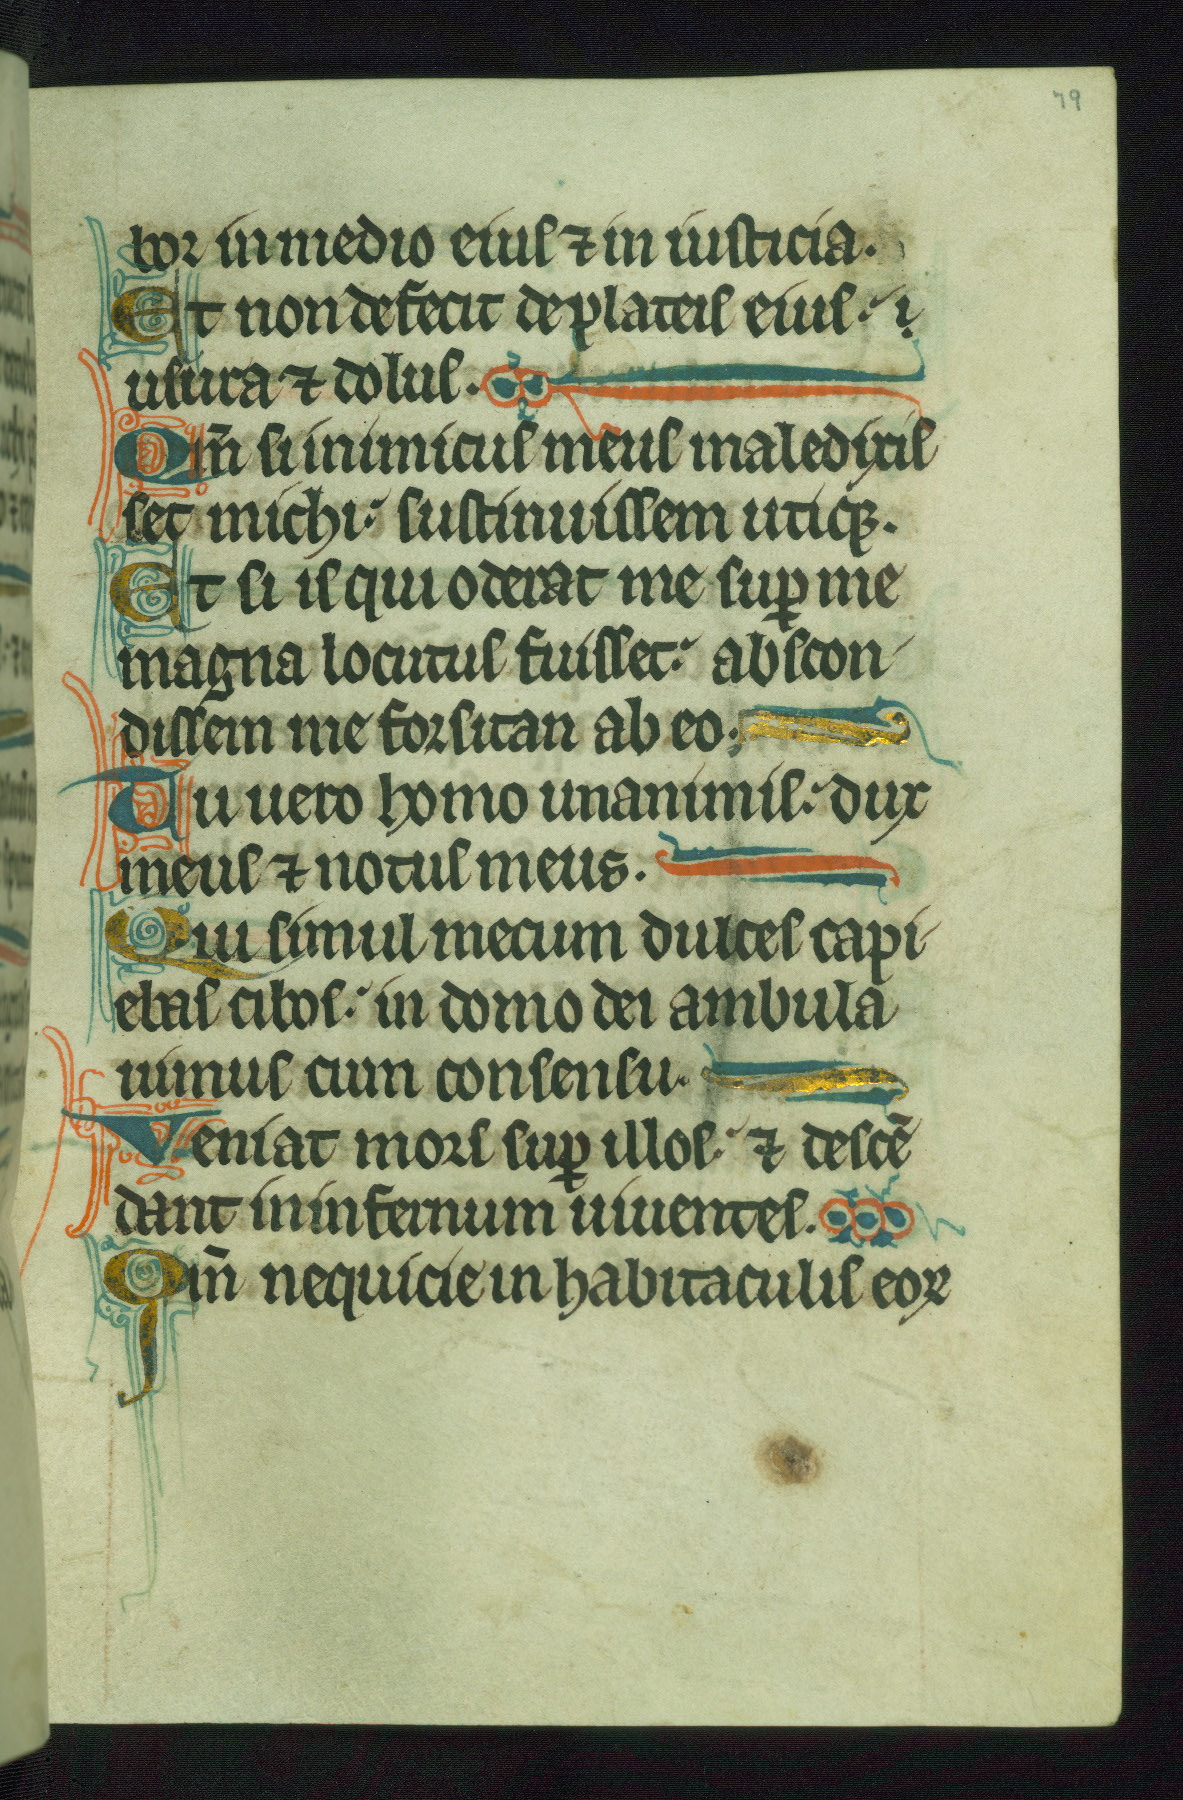 79
bor in medio eius ⁊ in iusticia.
Et non defecit de plateis eius: i
usura ⁊ dolus.
Qm̄ si inimicus meus maledixis
set michi: sustinuissem utiqꝫ.
Et si is qui oderat me suꝑ me
magna locutus fuisset: abscon
dissem me forsitan ab eo.
Tu uero homo unanimis: dux
meus ⁊ notus meus.
Qui simul mecum dulces capi
ebas cibos: in domo dei ambula
uimus cum consensu.
Veniat mors suꝑ illos: ⁊ descē
dant in infernum uiuentes.
Qm̄ nequicie in habitaculis eoꝝ